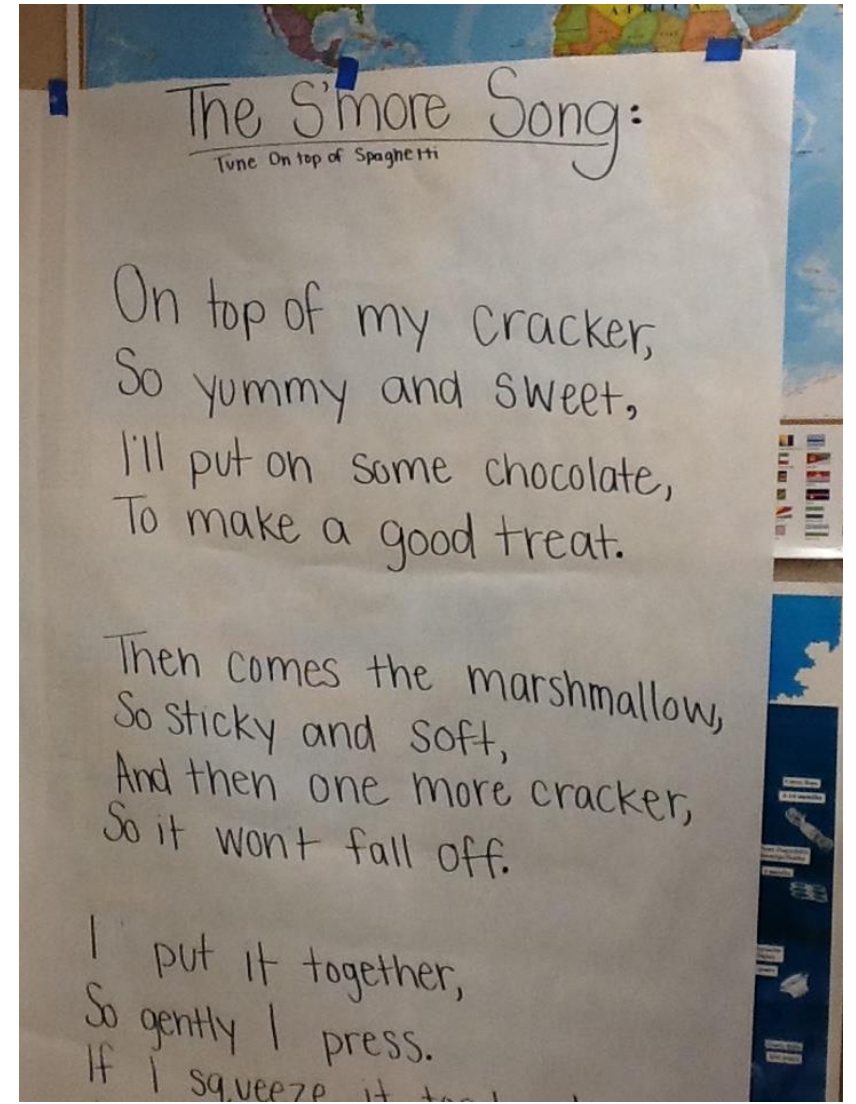 AFRICA
The S'more Song:
Tune On top of Spaghetti
On top of my cracker,
So yummy and sweet,
I'll put on some chocolate,
To make a good treat.
Then comes the marshmallow,
So sticky and soft,
And then one more cracker,
So it wont fall off.
I put it together,
So gently I press.
If I squeeze it